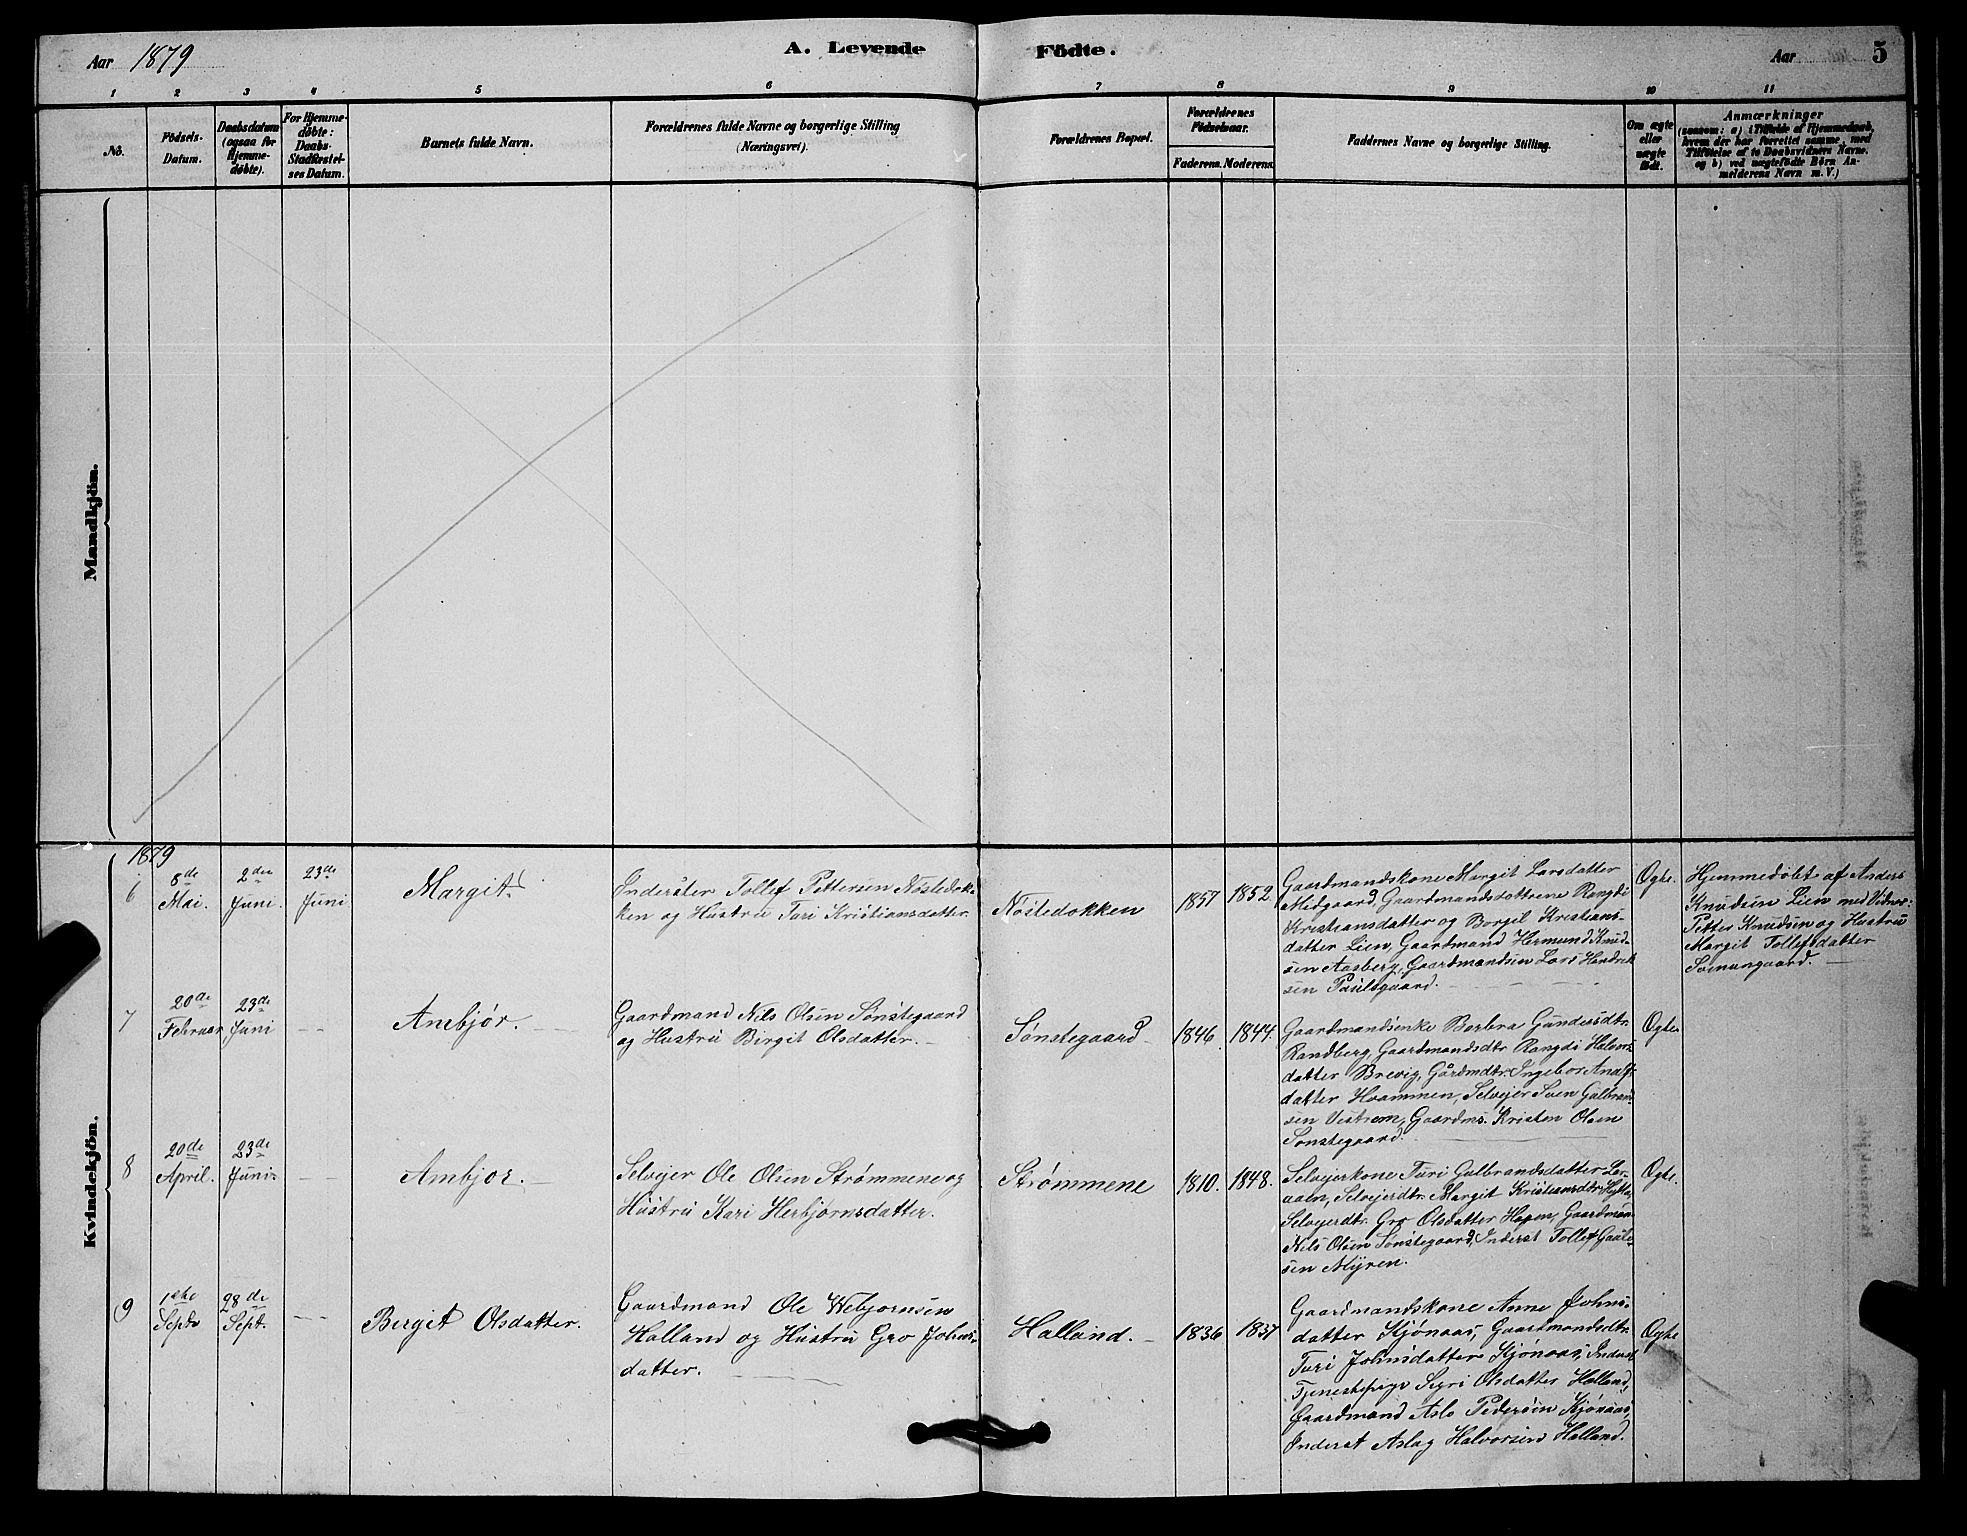 Aar 1879
A. Levende
Födte.
Aar
5
1 2 3 4 5 6 7 8 9 10 11
No.
Födsels-
Datum.
Daabsdatum
(ogsaa for
Hjemme-
døbte).
For Hjemme-
døbte:
Daabs-
Stadfæstel-
ses Datum.
Barnets fulde Navn.
Forældrenes fulde Navne og borgerlige Stilling
(Næringsvei).
Forældrenes Bopæl.
Forældrenes
Födselsaar.
Faderens. Moderens.
Faddernes Navne og borgerlige Stilling.
Om ægte
eller
uægte
født.
Anmærkninger
(saasom: a) i Tilfælde af Hjemmedaab,
hvem der har forrettet samme, med
Tilföielse af to Daabsvidners Navne.
og b) ved uægtefödte Börn An-
melderens Navn m. V.)
Mandkjön.
Kvindekjön.
1879
6
8de
Mai.
2den
Juni.
23de
Juni
Margit
Inderster Tollef Pettersen Nöstedok-
ken og Hustru Turi Kristiansdatter.
Nöstedokken
1857
1852.
Gaardmandskone Margit Larsdatter
Midgaard, Gaardmandsdottrene Rangdi
Kristiansdatter og Borgil Kristians-
datter Lien, Gaardmand Hermund Knud-
sen Aasberg, Gaardmandsen Lars Hendrik
sen Paulsgaard.
Ogte.
Hjemmedöbt af Anders
Knudsen Lien med Vidner:
Petter Knudsen og Hustru
Margit Tollefsdatter
Svenungaard.
7
20de
Februar
23de
Juni
Ambjør.
Gaardmand Nils Olsen Sønstegaard
og Hustru Birgit Olsdatter.
Sønstegaard
1846.
1844.
Gaardmandsenke Barbra Gundersdtr.
Randberg, Gaardmandsdtr Rangdi Halvors-
datter Brevig, Gårdmdtr. Ingebor Andf.
datter Hvammen, Selvejer Sven Gulbrand-
sen Vistrem, Gaardms. Kristen Olsen
Sønstegaard.
Ogte
8
20de
April.
23de
Juni
Ambjor.
Selvejer Ole Olsen Strømmene og
Hustru Kari Herbjørnsdatter.
Strømmene
1810.
1848.
Selvejerkone Turi Gulbrandsdatter
Selvejerdtr. Margit Kristiansdtr.
Selvejerdtr. Gro Olsdatter Hagen, Gaardman
Nils Olsen Sønstegaard, Inderst Tollef
sen Myren.
Ogte.
9
1ste
Septr
28de
Sept.
Birgit Olsdatter.
Gaardmand Ole Webjornsen
Halland og Hustru Gro Johns-
datter.
Halland.
1836
1837
Gaardmandskone Anne Johns-
datter Kjönaas, Gaardmandsdtr.
Turi Johnsdatter Kjönaas, Inderst
Tjenestepige Sigri Olsdatter Halland,
Gaardmand Aslo Pedersen Kjönaas,
Inderst Aslag Halvorsen Halland.
Ogte